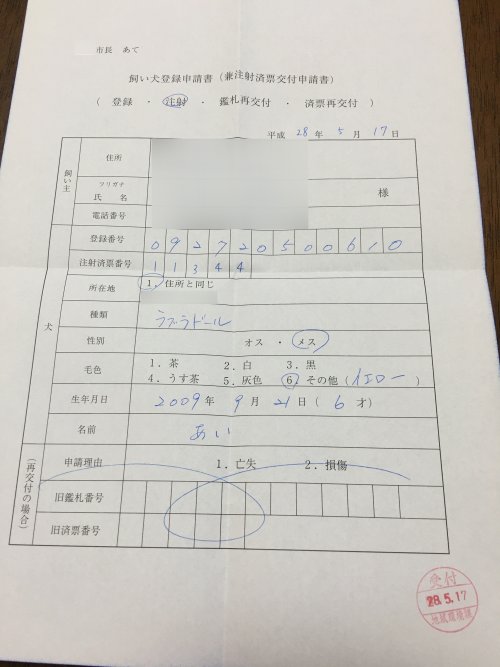 市長　あて
飼い犬登録申請書（兼注射済票交付申請書）
（　登録　・　注射　・　鑑札再交付　・　済票再交付　）
平成 28 年 5 月 17 日
飼い主
住所
フリガナ
氏　名
様
電話番号
犬
登録番号 092720500610
注射済票番号 11344
所在地 1．住所と同じ
種類 ラブラドール
性別 オス　・　メス
毛色 1．茶　2．白　3．黒
4．うす茶　5．灰色　6．その他（イエロー）
生年月日 2009 年 9 月 21 日（ 6 才）
名前 あい
（再交付の場合）
申請理由 1．亡失　2．損傷
旧鑑札番号
旧済票番号
受付
28.5.17
地域環境課